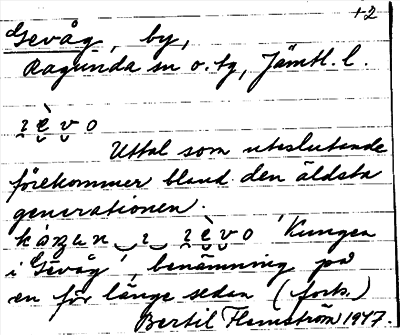 12
Gevåg, by,
Ragunda sn o. tg, Jämtl. l.
Uttal som uteslutande
förekommer bland den äldsta
generationen.
'Kungen
i Gevåg', benämning på
en för länge sedan (fork.)
Bertil Flemström 1947.